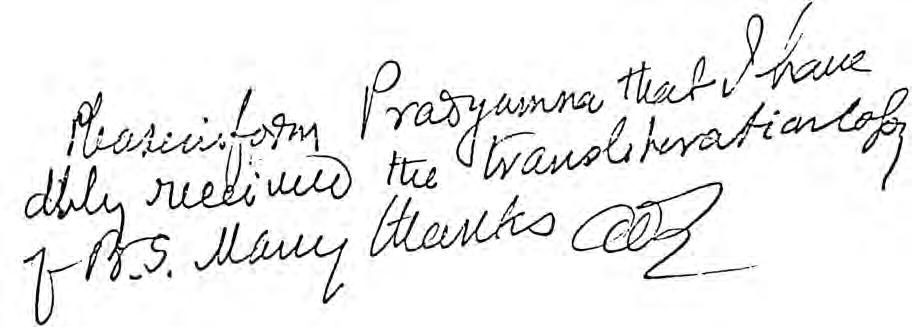 Please inform Pradyumna that I have
duly received the transliteration copy
of B.S. Many thanks